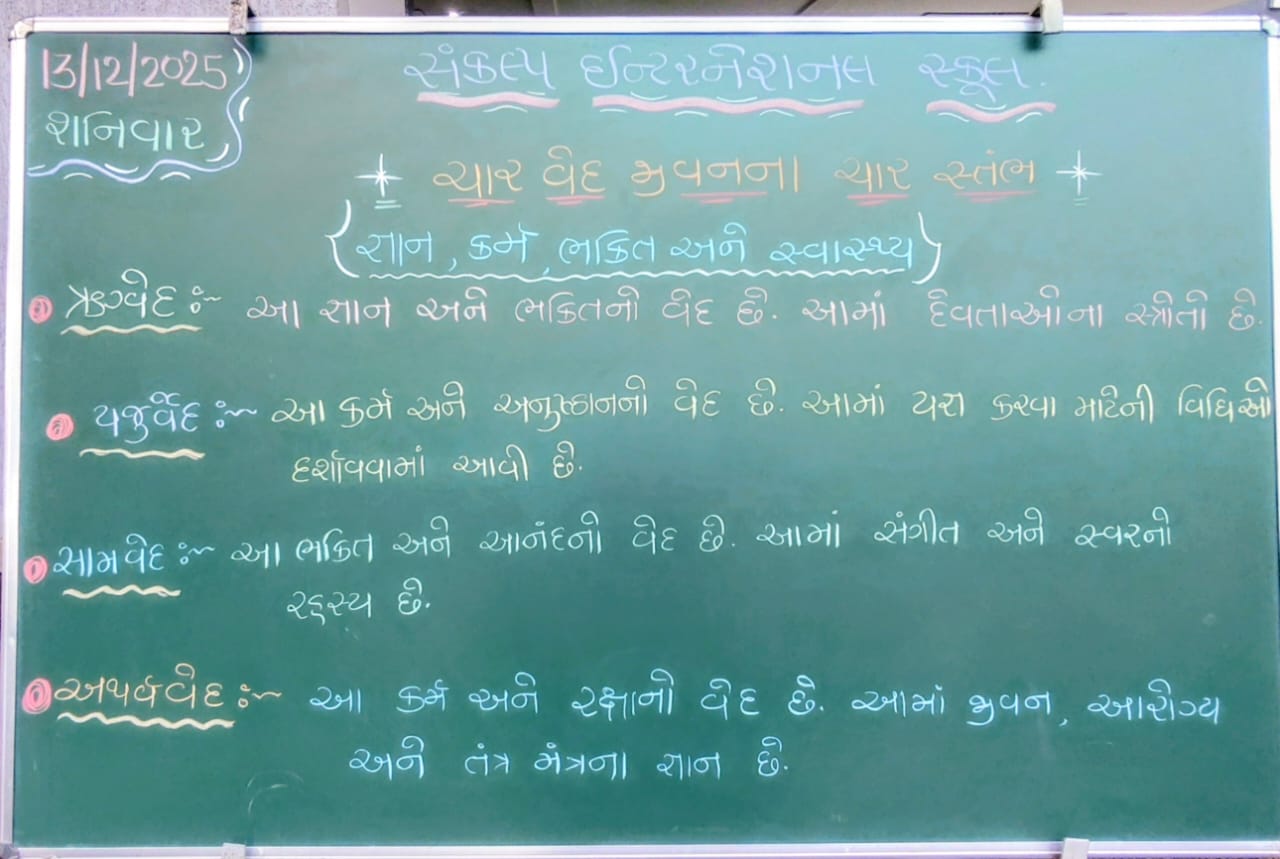 13/12/2025
શનિવાર
સંકલ્પ ઇન્ટરનેશનલ સ્કૂલ.
ચાર વેદ જીવનના ચાર સ્તંભ
(જ્ઞાન, કર્મ, ભકિત અને સ્વાસ્થ્ય)
ઋગ્વેદ :~ આ જ્ઞાન અને ભકિતનો વેદ છે. આમાં દેવતાઓના સ્ત્રોતો છે.
યજુર્વેદ :~ આ કર્મ અને અનુષ્ઠાનનો વેદ છે. આમાં યજ્ઞ કરવા માટેની વિધિઓ
દર્શાવવામાં આવી છે.
સામવેદ :~ આ ભકિત અને આનંદનો વેદ છે. આમાં સંગીત અને સ્વરનો
રહસ્ય છે.
અથર્વવેદ :~ આ કર્મ અને રક્ષાનો વેદ છે. આમાં જીવન, આરોગ્ય
અને તંત્ર મંત્રના જ્ઞાન છે.